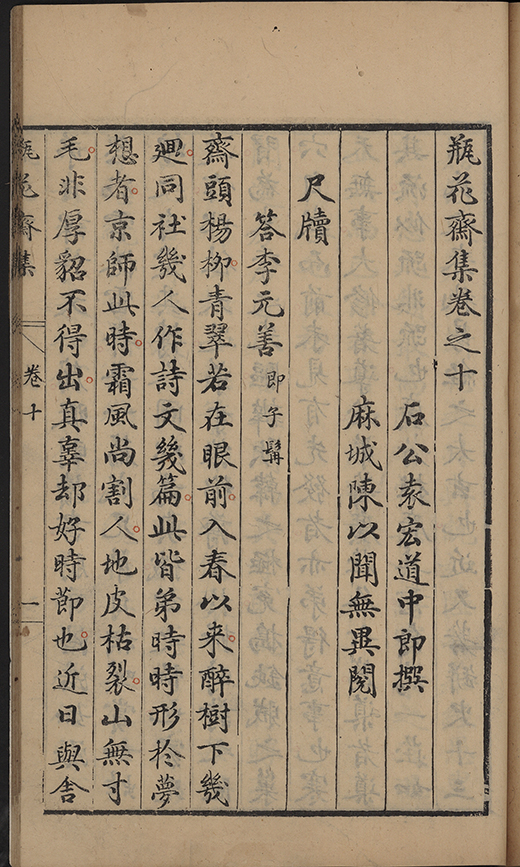 瓶花齋集卷之十
石公袁宏道中郎撰
麻城陳以聞無異閱
尺牘
答李元善即子髯
齋頭楊柳青翠若在眼前入春以来醉樹下幾
廻同社幾人作詩文幾篇此皆弟時時形於夢
想者京師此時霜風尚割人地皮枯裂山無寸
毛非厚貂不得出真辜却好時節也近日與舎
瓶花齋集
卷十
一